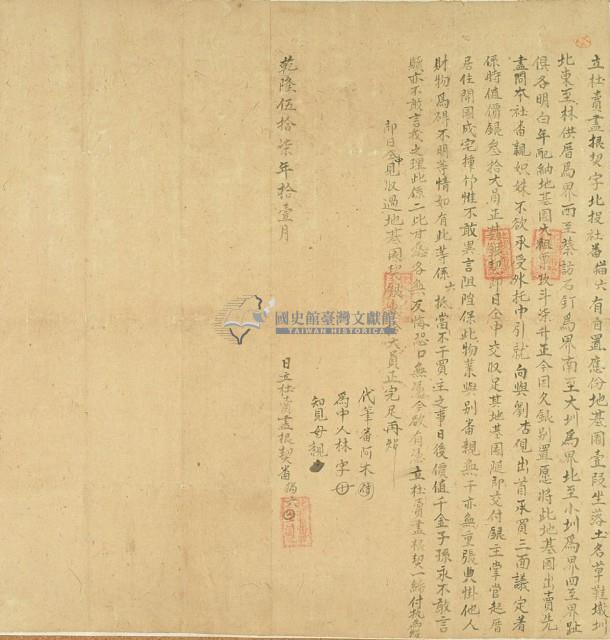 立杜賣盡根契字北投社番猫六有自置應份地基園壹段坐落土名草鞋墩圳
北東至林供厝為界西至蔡訪石釘為界南至大圳為界北至小圳為界四至界趾
俱各明白年配納地基園大租粟玖斗柒升正今因欠銀別置愿將此地基園出賣先
盡問本社番親姒妹不欲承受外托中引就向與劉杏觀出首承買三面議定著
係時值價銀叁拾大員正其銀契即日仝中交收足其地基園隨即交付銀主掌管起厝
居住開園成宅種竹惟不敢異言阻隌保此物業與別番親無干亦無重張典掛他人
財物為碍不明等情如有此等係六抵當不干買主之事日後價值千金子孫永不敢言
贖亦不敢言找之理此係二比甘愿各無反悔恐口無憑今欲有憑立杜賣盡根契一紙付執為炤
即日仝中見收過地基園契銀大員正完足再炤
代筆番阿木
為中人林字
知見母親
日立杜賣盡根契番猫六
乾隆伍拾柒年拾壹月
國史館臺灣文獻館
TAIWAN HISTORICA